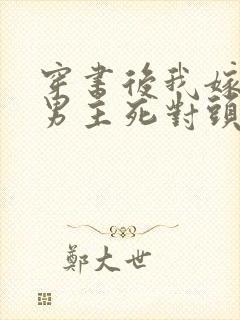 穿書後我嫁
男主死對頭
鄭大世